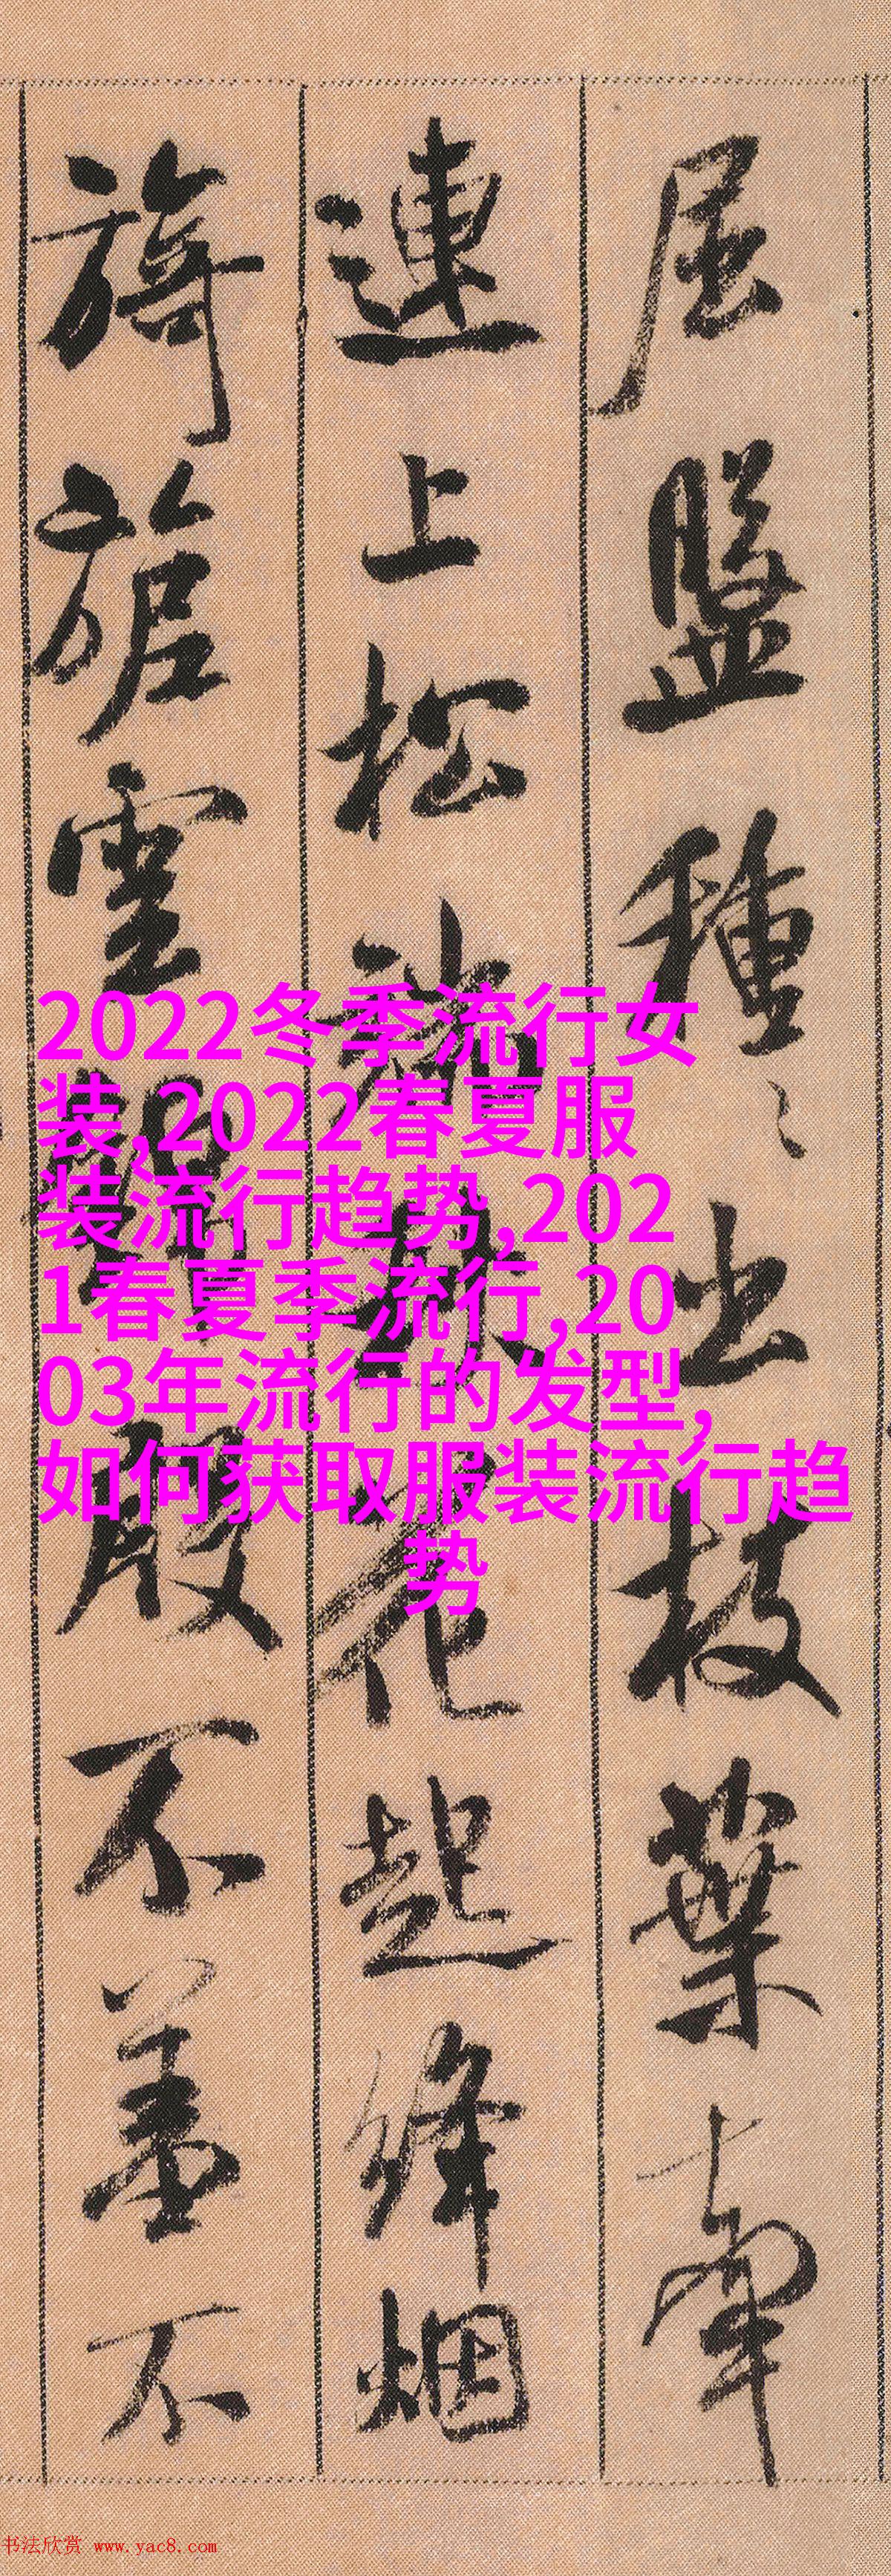 屈盤種〻出枝葉牽
連上松端秋花起絳烟
旖旎雲錦殷不羞不
2022冬季流行女
装,2022春夏服
装流行趋势,202
1春夏季流行,20
03年流行的发型,
如何获取服装流行趋
势
书法欣赏 www.yac8.com